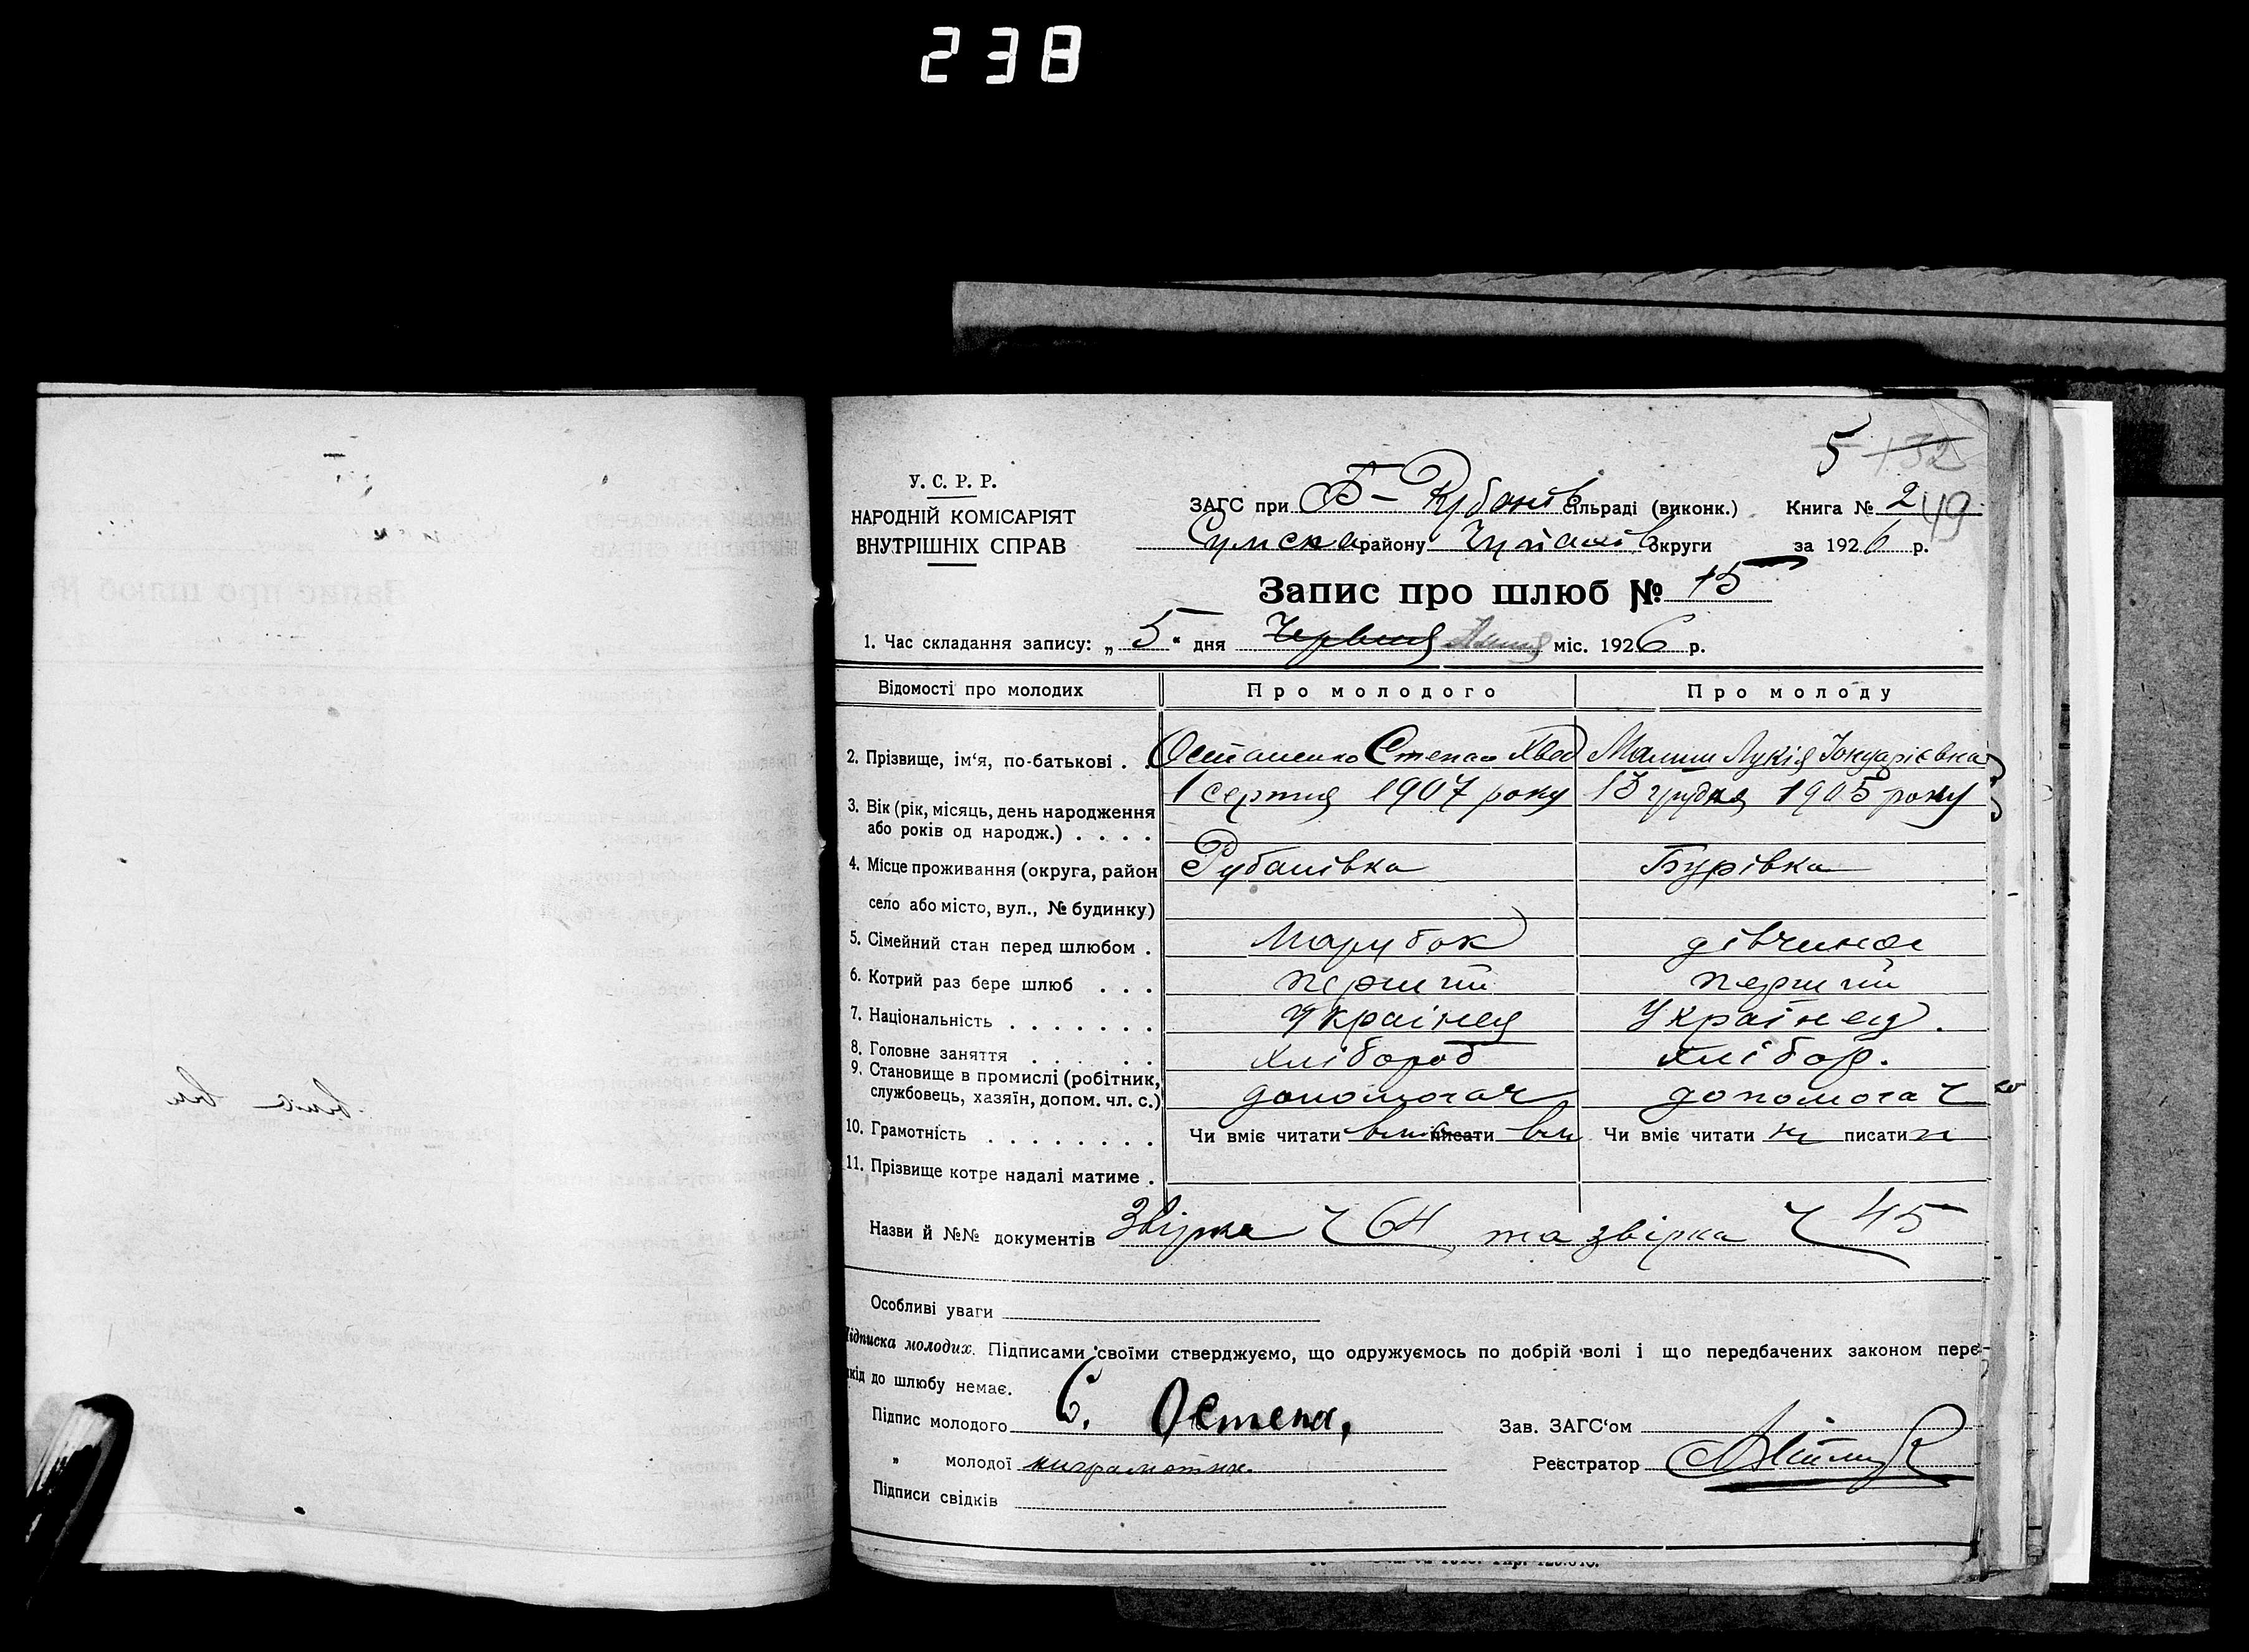 238
5 132
У. С. Р. Р.
НАРОДНІЙ КОМІСАРІЯТ
ВНУТРІШНІХ СПРАВ
ЗАГС при Б-Рубанів сільраді (виконк.) Книга № 2
49
району округи за 1926 р.
Запис про шлюб № 15
1. Час складання запису: „ 5 “ дня Червня міс. 1926 р.
Відомості про молодих Про молодого Про молоду
2. Прізвище, ім‘я, по-батькові . . Степан Хвед Лукія
3. Вік (рік, місяць, день народження 1 серпня 1907 року 13 грудня 1905 року
або років од народж.) . . . .
4. Місце проживання (округа, район Рубанівка Бурівка
село або місто, вул., № будинку)
5. Сімейний стан перед шлюбом . парубок дівчина
6. Котрий раз бере шлюб . . . перший перший
7. Національність . . . . . . . Українец Українец.
8. Головне заняття . . . . . . хлібороб хлібор.
9. Становище в промислі (робітник,
службовець, хазяїн, допом. чл. с.) допомогач допомогач
10. Грамотність . . . . . . . . Чи вміє читати вміє писати вм Чи вміє читати н писати н
11. Прізвище котре надалі матиме .
Назви й №№ документів Звірка Ч 64, та звірка Ч 45
Особливі уваги
Підписка молодих. Підписами своїми стверджуємо, що одружуємось по добрій волі і що передбачених законом пере-
шкід до шлюбу немає.
Підпис молодого С. Остепа, Зав. ЗАГС‘ом
„ молодої ниграмотна. Реєстратор
Підписи свідків